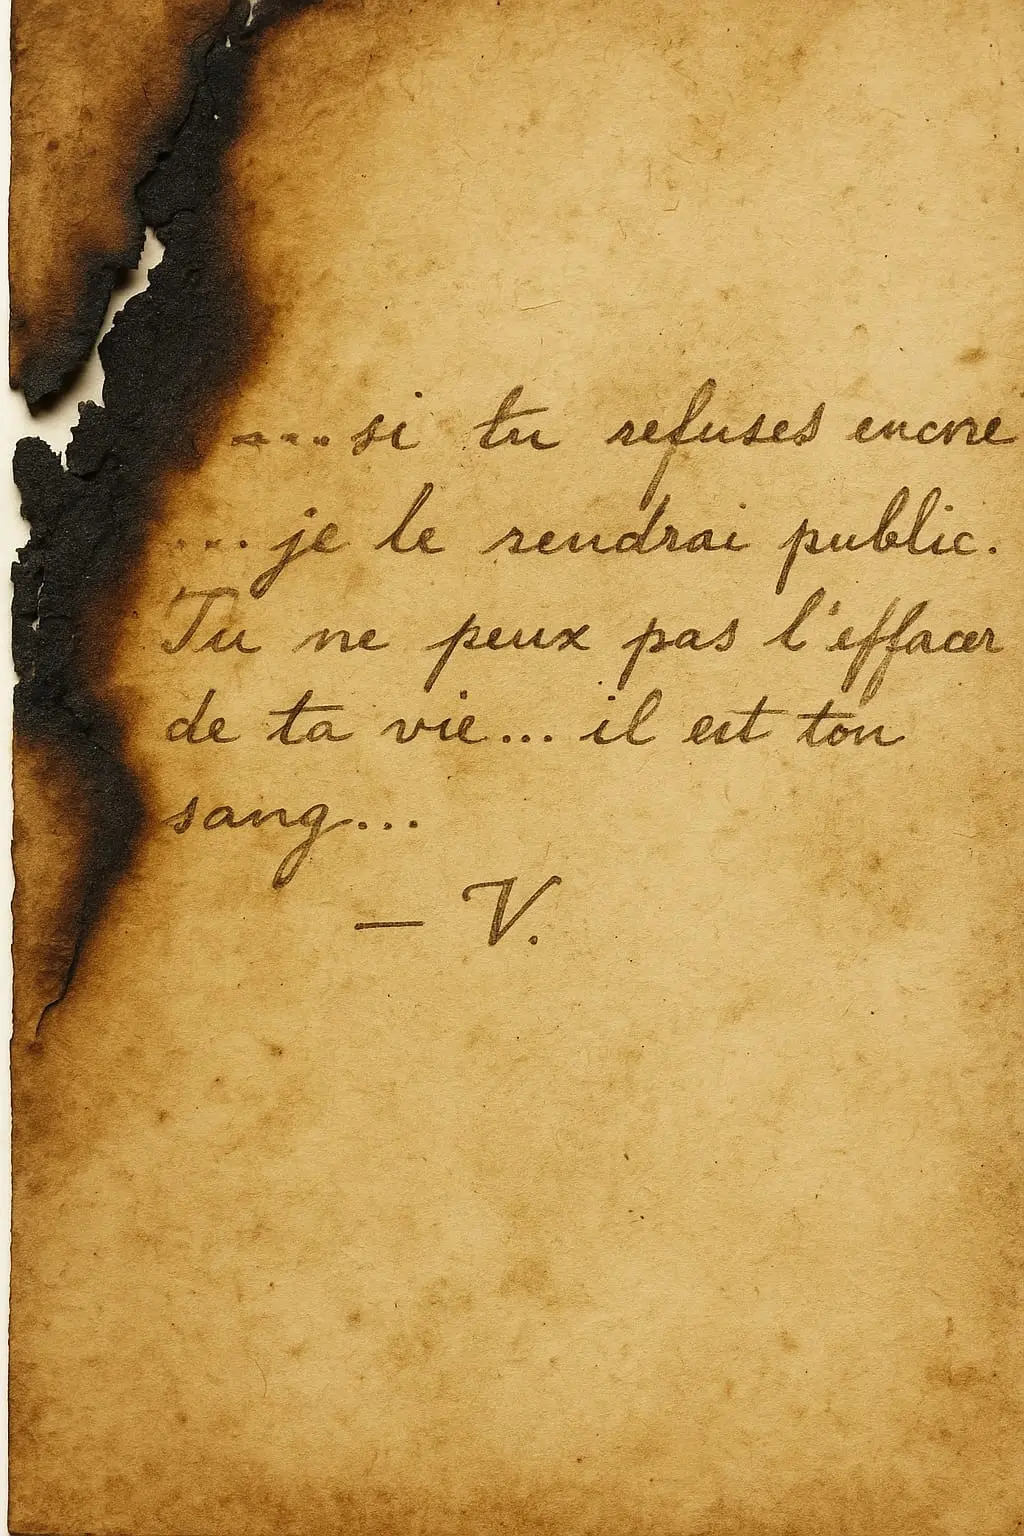 ....si tu refuses encore
... je le rendrai public.
Tu ne peux pas l'effacer
de ta vie... il est ton
sang...
— V.